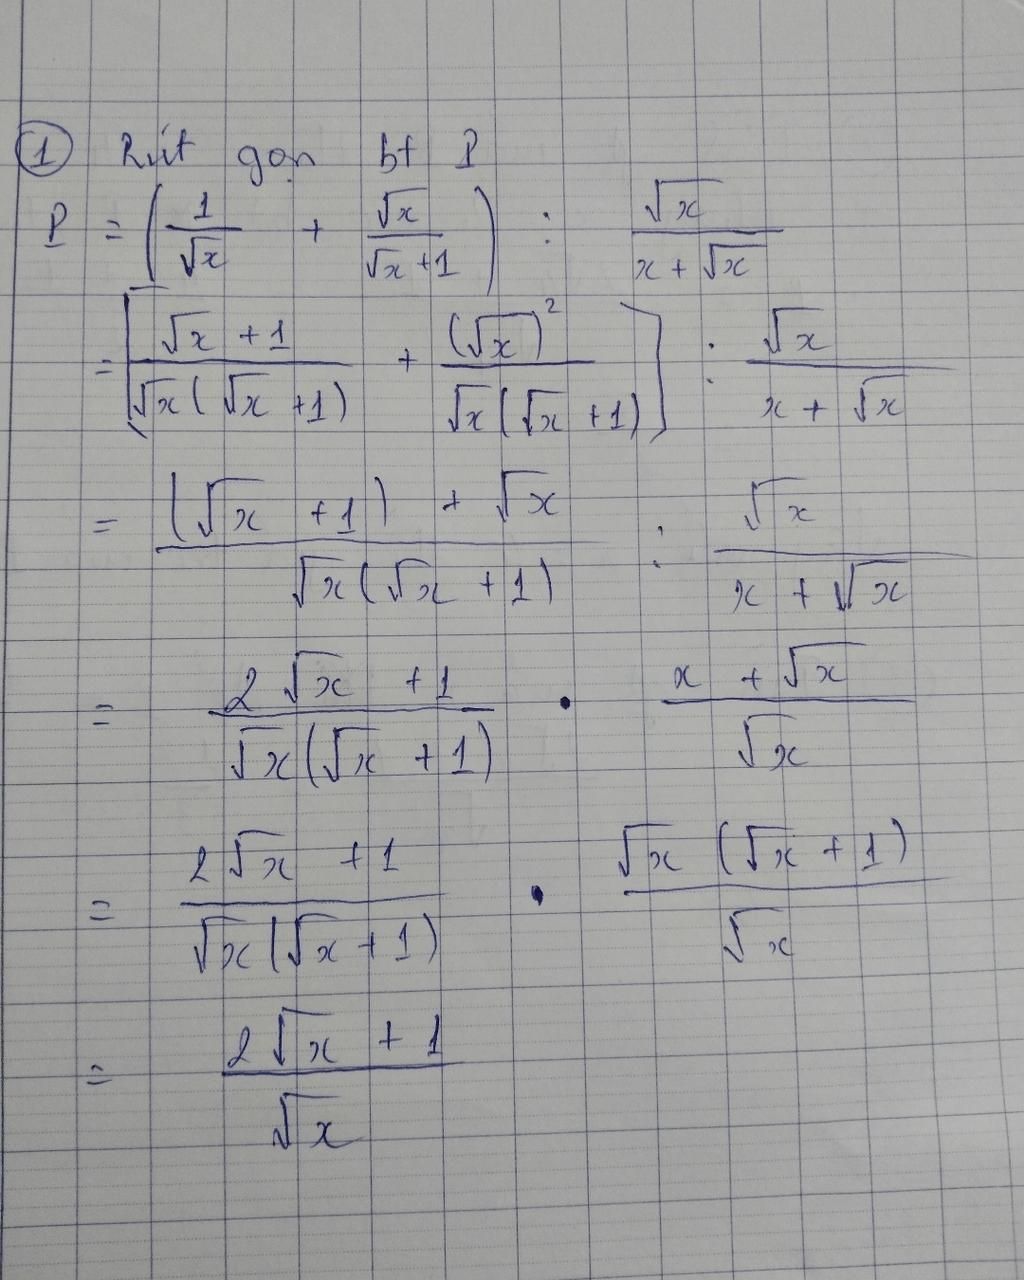 ① Rút gọn bt P
P = (1/√x + √x/(√x + 1)) : √x/(x + √x)
= [(√x + 1)/(√x(√x + 1)) + (√x)²/(√x(√x + 1))] : √x/(x + √x)
= ((√x + 1) + √x)/(√x(√x + 1)) : √x/(x + √x)
= (2√x + 1)/(√x(√x + 1)) • (x + √x)/√x
= (2√x + 1)/(√x(√x + 1)) • (√x(√x + 1))/√x
= (2√x + 1)/√x